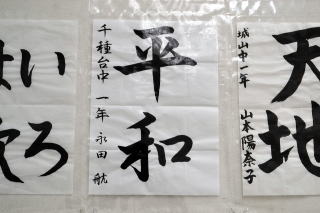 天地
城山中一年
山本陽奈子
平和
千種台中 一年 永田 航
いろ